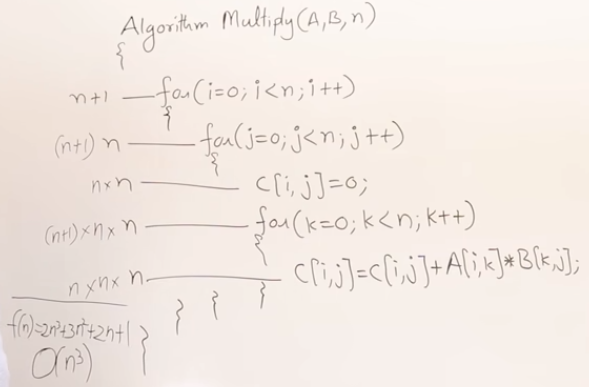 Algorithm Multiply(A,B,n)
{
n+1 for(i=0; i<n; i++)
{
(n+1) n for(j=0; j<n; j++)
{
n×n C[i, j]=0;
(n+1)×n×n for(k=0; k<n; k++)
{
n×n×n C[i,j]=C[i,j]+A[i,k]*B[k,j];
} } }
f(n)=2n³+3n²+2n+1 }
O(n³)